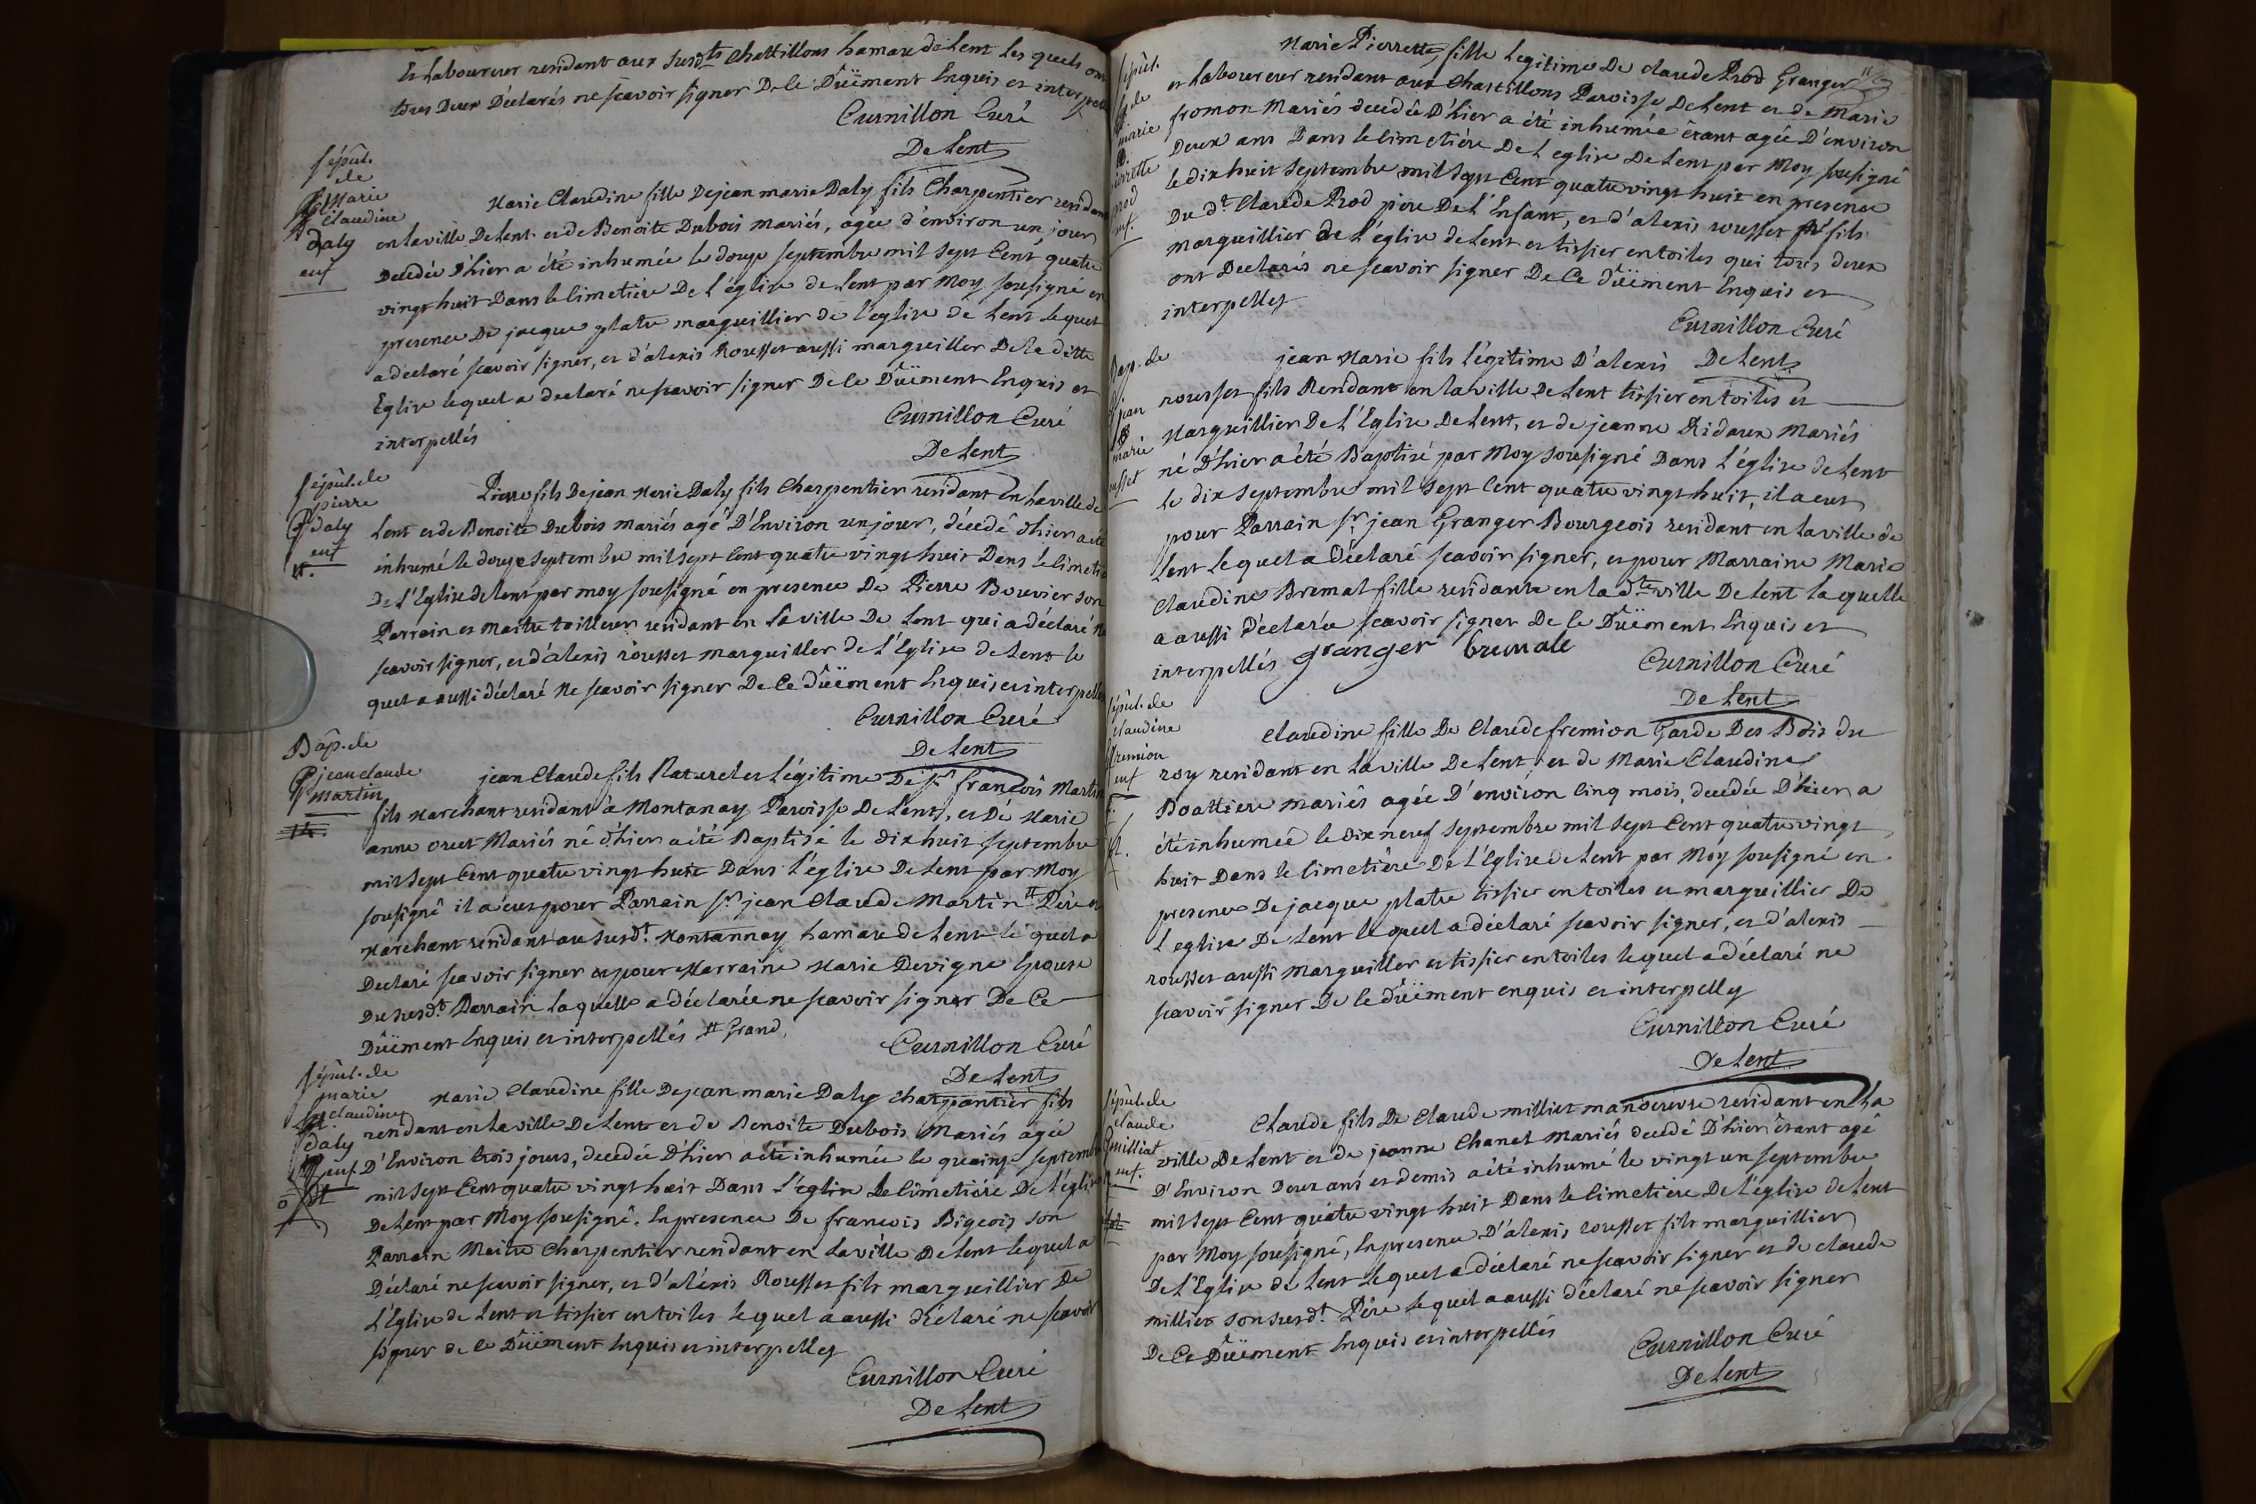 Et laboureur residant aux susd.ts Chattillons hamau de Lent les quels ont
tous deux Déclarés ne scavoir signer De Ce Düëment Enquis et interpellés
Curnillon Curé
De Lent
sépul.
de
Marie
Claudine
Daly
enf
Marie Claudine fille De jean marie Daly fils Charpentier residant
en la ville De Lent et de Benoite Dubois mariés, agée d'environ un jour
Decedée D'hier a été inhumée le douze septembre mil sept Cent quatre
vingt huit Dans le Cimetiere De l'église de Lent par Moy sousigné en
presence De jacque platre marguillier de l'eglise de Lent lequel
a declaré scavoir signer, et d'alexis Rousset aussi marguiller De la ditte
Eglise lequel a declaré ne scavoir signer De Ce Düëment Enquis et
interpellés
Curnillon Curé
De Lent
sépul. de
pierre
Daly
enf
Pierre fils De jean Marie Daly fils Charpentier residant En la ville de
Lent et de Benoite Dubois mariés agé D'Environ un jour, décedé d'hier a été
inhumé le douze septembre mil sept Cent quatre vingt huit Dans le Cimetie
De l'Eglise de Lent par moy sousigné en presence De Pierre Bouvier son
Parrain et maitre tailleur residant en la ville De Lent qui a déclaré ne
scavoir signer, et d'alexis rousset marguiller de l'Eglise de Lent le
quel a aussi déclaré ne scavoir signer De Ce düëment Enquis et interpellés
Curnillon Curé
De Lent
Bap. de
jean claude
martin
jean Claude fils Naturel et Légitime De sr françois Martin
fils Marchant residant à Montanay Paroisse De Lent, et De Marie
anne oret Mariés né d'hier a été Baptisé le dix huit septembre
mil sept Cent quatre vingt huit Dans l'église De Lent par Moy
sousigné il a eu pour Parrain sr jean Claude Martin # Pere et
Marchant residant au susd.t Montannay hamau de Lent le quel a
Declaré scavoir signer et pour Marraine Marie Devigne Epouse
Du susd.t Parrain laquelle a déclarée ne scavoir signer De Ce
Düëment Enquis et interpellés # Grand
Curnillon Curé
De Lent
sépul. de
marie
claudine
daly
enf
Marie Claudine fille De jean marie Daly Charpantier fils
residant en la ville De Lent et de Benoite Dubois Mariés agée
D'Environ trois jours, decedée D'hier a été inhumée le quinze septembre
mil sept Cent quatre vingt huit Dans l'eglise le Cimetiére De l'église
De Lent par Moy sousigné. En presence De francois Bigeois son
Parrain Maitre Charpentier residant en la ville De Lent lequel a
Déclaré ne scavoir signer, et d'aléxis Rousset fils marguillier De
l'église de Lent et tissier en toiles lequel a aussi déclaré ne scavoir
signer de Ce Düëment Enquis et interpellez
Curnillon Curé
De Lent
sépul.
de
marie
pierrette
prod
enf.
Marie Pierrette, fille Legitime De claude Prod Granger
et Laboureur residant aux Chastillons Paroisse De Lent et de Marie
fromon Mariés decedée D'hier a été inhumée étant agée D'environ
Deux ans Dans le Cimetiére De L eglise De Lent par Moy sousigné
le dix huit septembre mil sept Cent quatre vingt huit en presence
Du d.t Claude Prod pere De l'Enfant, et d'alexis rousset fils
Marguillier de l'église de Lent et tissier en toiles qui tous deux
ont Declarés ne scavoir signer De Ce düëment Enquis et
interpellez
Curnillon Curé
De Lent
Bap. de
jean
marie
rousset
jean Marie fils légitime D'alexis
rousset fils Residant en la ville De Lent tissier en toiles et
Marguillier De l'Eglise De Lent, et de jeanne Ridaux Mariés
né D'hier a été Baptisé par Moy sousigné Dans l'église de Lent
le dix septembre mil sept Cent quatre vingt huit, il a eut
pour Parrain sr jean Granger Bourgeois residant en la ville de
Lent lequel a Déclaré scavoir signer, et pour Marraine Marie
Claudine Bremal fille residante en la d.te ville De Lent laquelle
a aussi déclarée scavoir signer De Ce Düëment Enquis et
interpellés granger bremale
Curnillon Curé
De Lent
sépul. de
claudine
fremion
enf
Claudine fille De Claude fremion Garde Des Bois du
roy residant en la ville De Lent, et de Marie Claudine
Boattiere mariés agée D'environ Cinq mois, decedée D'hier a
été inhumée le dix neuf septembre mil sept Cent quatre vingt
huit Dans le Cimetiére De l'Eglise de Lent par Moy sousigné en
presence De jacque platre tissier en toiles et marguillier De
L'eglise De Lent lequel a déclaré scavoir signer, et d'alexis
rousset aussi Marguiller et tissier en toiles lequel a déclaré ne
scavoir signer De Ce düëment enquis et interpelly
Curnillon Curé
De Lent
sépul. de
claude
milliet
enf.
Claude fils De Claude milliet manoeuvre residant en La
ville De Lent et de jeanne Chanel Mariés decedé D'hier étant agé
D'Environ Deux ans et demis a été inhumé le vingt un septembre
mil sept Cent quatre vingt huit Dans le Cimetiere De l'église de Lent
par Moy sousigné, En presence D'alexis rousset fils marguillier
De l'Eglise de Lent lequel a déclaré ne scavoir signer et de claude
milliet son susd.t Pére lequel a aussi déclaré ne scavoir signer
De Ce Düëment Enquis et interpellés
Curnillon Curé
De Lent